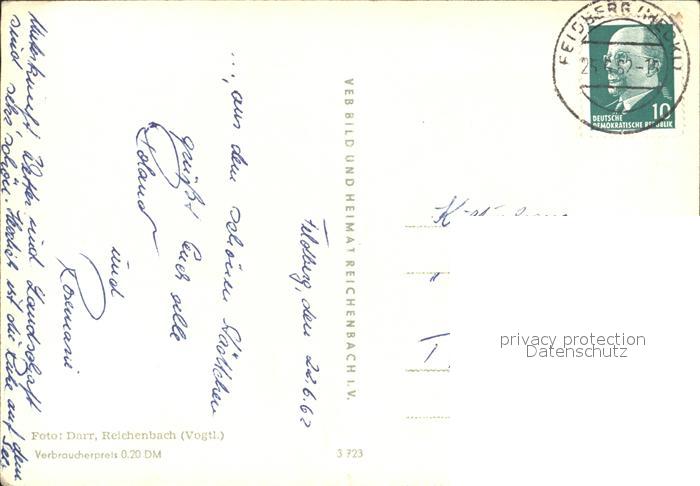 Feldberg, den 22.6.62
..., aus dem schönen Städtchen
grüßt Euch alle
Roland
und
Rosemarie
Unterkunft, Wetter und Landschaft
sind sehr schön. Herrlich ist die Ruhe auf dem
See.
VEB BILD UND HEIMAT REICHENBACH I. V.
Foto: Darr, Reichenbach (Vogtl.)
Verbraucherpreis 0,20 DM
3 723
FELDBERG (MECKL)
62-1
10
DEUTSCHE
DEMOKRATISCHE REPUBLIK
"
T
privacy protection
Datenschutz